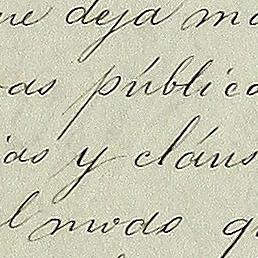 ue deja m
as públic
ias y cláus
l modo q